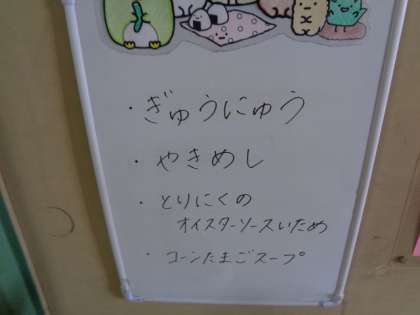 ・ぎゅうにゅう
・やきめし
・とりにくの
オイスターソースいため
・コーンたまごスープ